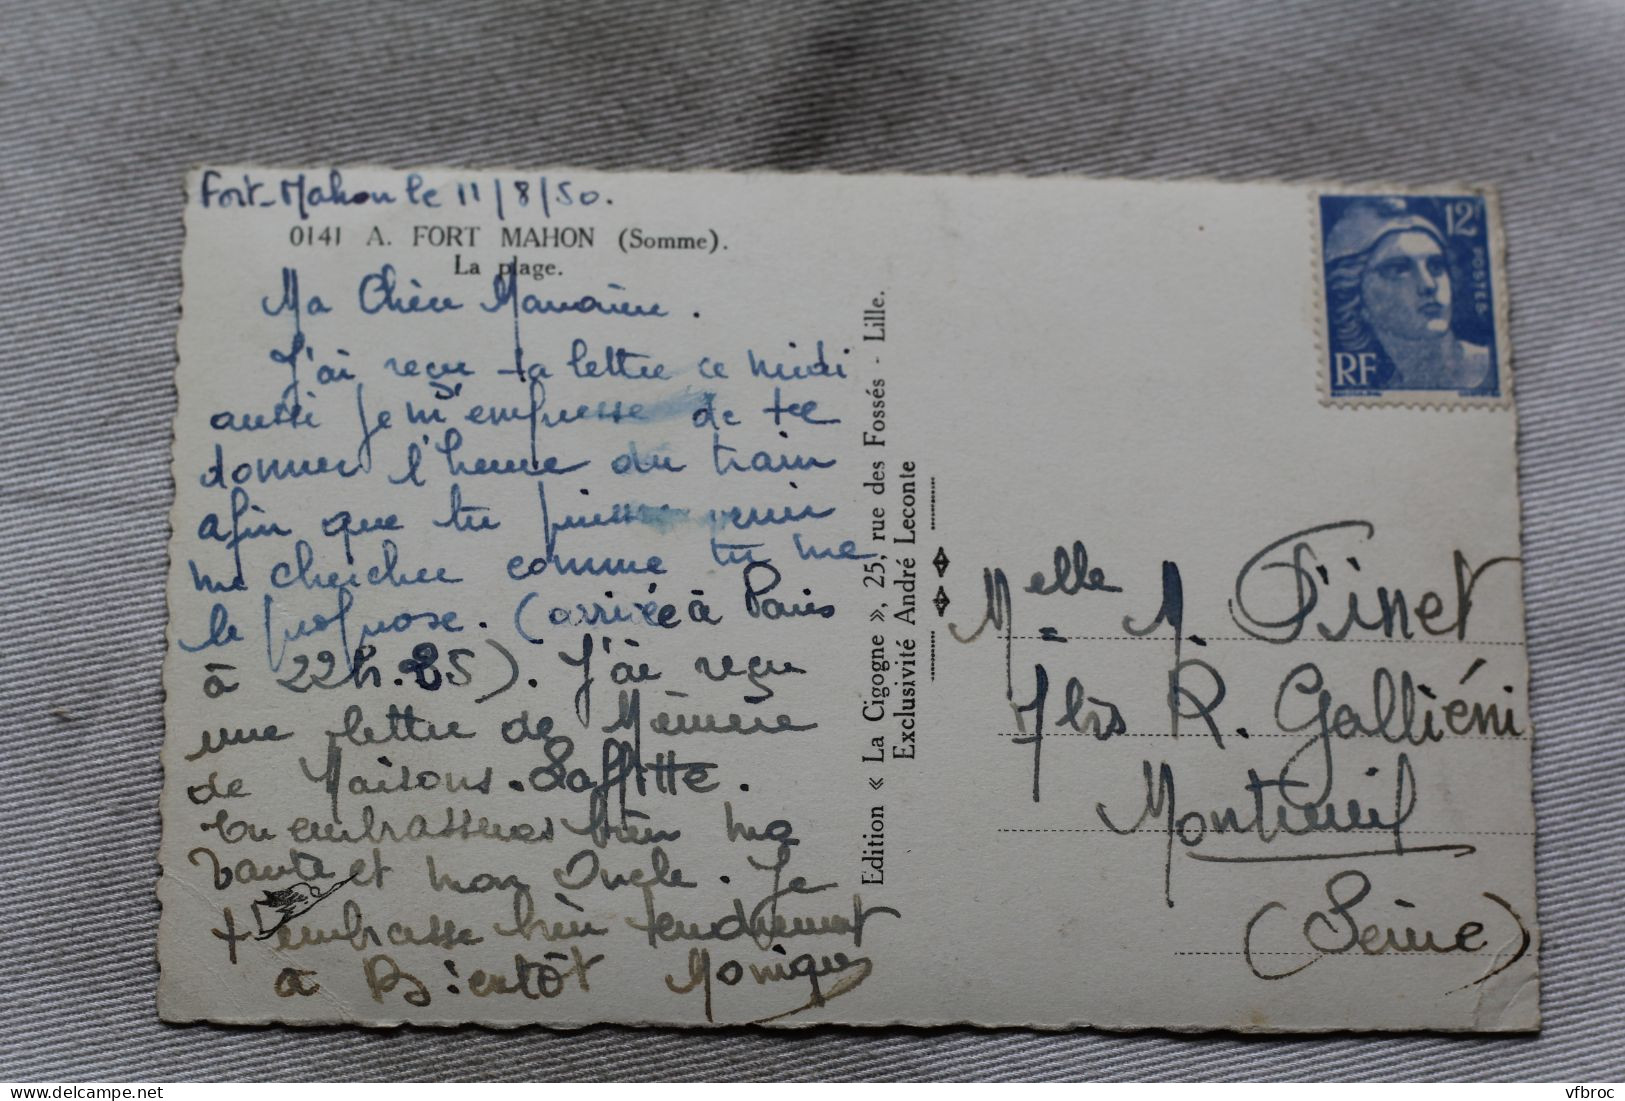 Fort-Mahon le 11/8/50.
0141 A. FORT MAHON (Somme).
La plage.
Ma Chère Marraine.
J'ai reçu ta lettre ce midi
aussi je m'empresse de te
donner l'heure du train
afin que tu puisses venir
me chercher comme tu me
le propose. (arrivée à Paris
à 22h.25). J'ai reçu
une lettre de Mémère
de Maisons-Laffitte.
Tu embrasseras bien ma
tante et mon Oncle. Je
t'embrasse bien tendrement
à Bientôt Monique
Edition « La Cigogne », 25, rue des Fossés - Lille.
Exclusivité André Leconte
12F
POSTES
RF
Melle M. Pinet
7 bis R. Galliéni
Montreuil
(Seine)
vfbroc / delcampe.net